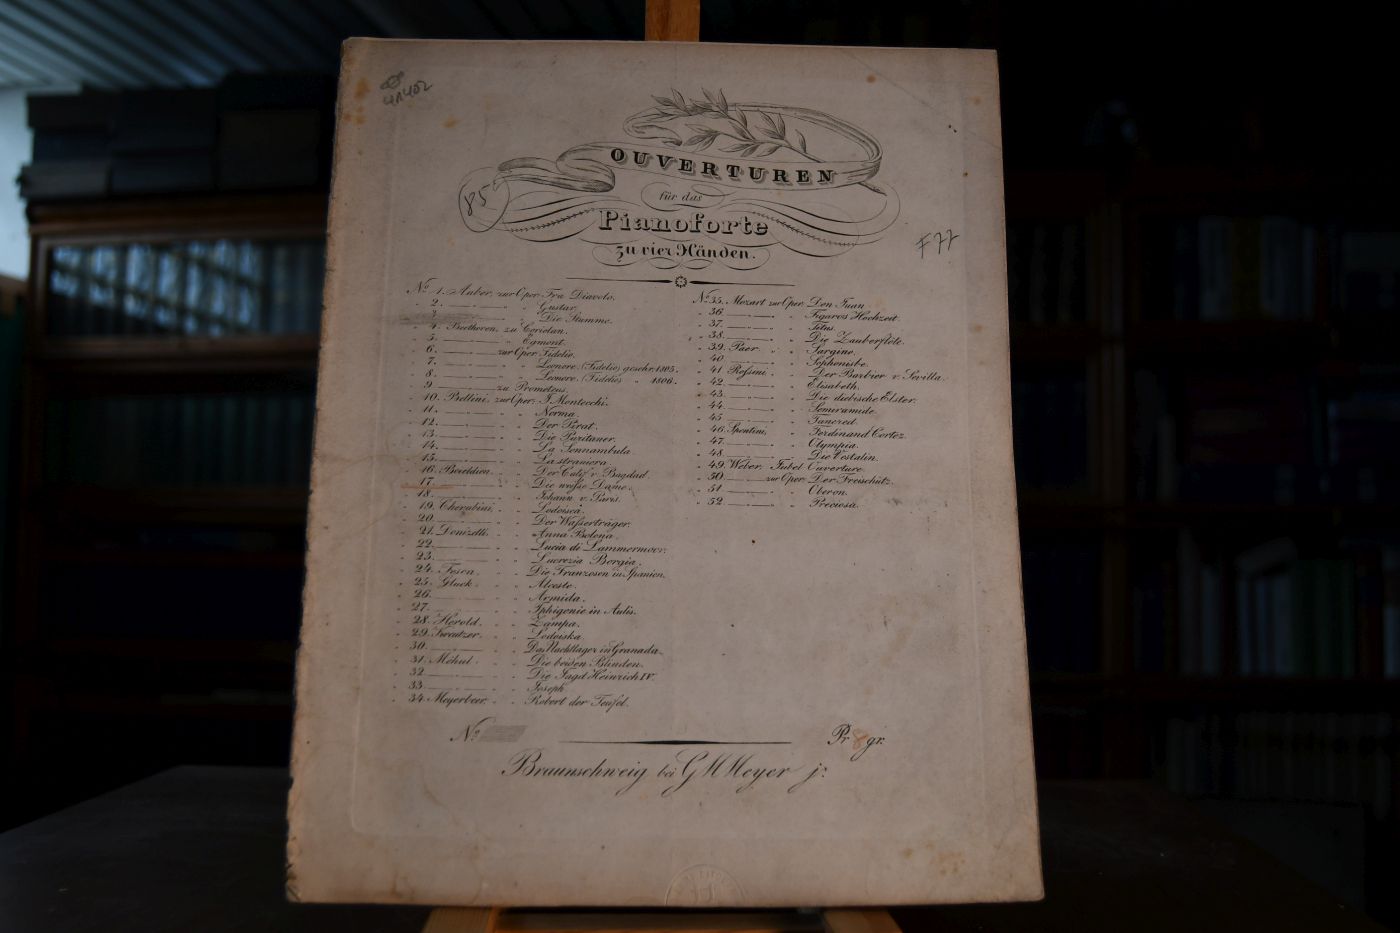 41402
OUVERTUREN
für das
Pianoforte
zu vier Händen.
85
F 77
No. 1. Auber, zur Oper Fra Diavolo.
" 2. " " Gustav.
" 3. " " Die Stumme.
" 4. Beethoven, zu Coriolan.
" 5. " Egmont.
" 6. zur Oper Fidelio.
" 7. " " Leonore. (Fidelio) geschr. 1805.
" 8. " " Leonore. (Fidelio) " 1806.
" 9. zu Prometeus.
" 10. Bellini, zur Oper, J Montecchi.
" 11. " " Norma.
" 12. " " Der Pirat.
" 13. " " Die Puritaner.
" 14. " " La Sonnambula
" 15. " " La straniera.
" 16. Boieldieu. " " Der Calif v. Bagdad.
" 17. " " Die weisse Dame.
" 18. " " Johann v. Paris.
" 19. Cherubini, " " Lodoisca.
" 20. " " Der Wasserträger.
" 21. Donizetti. " " Anna Bolena.
" 22. " " Lucia di Lammermoor.
" 23. " " Lucrezia Borgia.
" 24. Fesca. " " Die Franzosen in Spanien.
" 25. Gluck. " " Alceste.
" 26. " " Armida.
" 27. " " Iphigenie in Aulis.
" 28. Herold. " " Zampa.
" 29. Kreutzer. " " Lodoiska.
" 30. " " Das Nachtlager in Granada.
" 31. Méhul. " " Die beiden Blinden.
" 32. " " Die Jagd Heinrich IV.
" 33. " " Joseph.
" 34. Meyerbeer. " " Robert der Teufel.
No. 35. Mozart zur Oper Don Juan.
" 36. " " Figaros Hochzeit.
" 37. " " Titus.
" 38. " " Die Zauberflöte.
" 39. Päer. " " Sargino.
" 40. " " Sophonisbe.
" 41. Rossini. " " Der Barbier v. Sevilla.
" 42. " " Elisabeth.
" 43. " " Die diebische Elster.
" 44. " " Semiramide.
" 45. " " Tancred.
" 46. Spontini, " " Ferdinand Cortez.
" 47. " " Olympia.
" 48. " " Die Vestalin.
" 49. Weber. Jubel Ouverture.
" 50. zur Oper Der Freischütz.
" 51. " " Oberon.
" 52. " " Preciosa.
No.
Pr 8 gr.
Braunschweig bei G M Meyer jr.